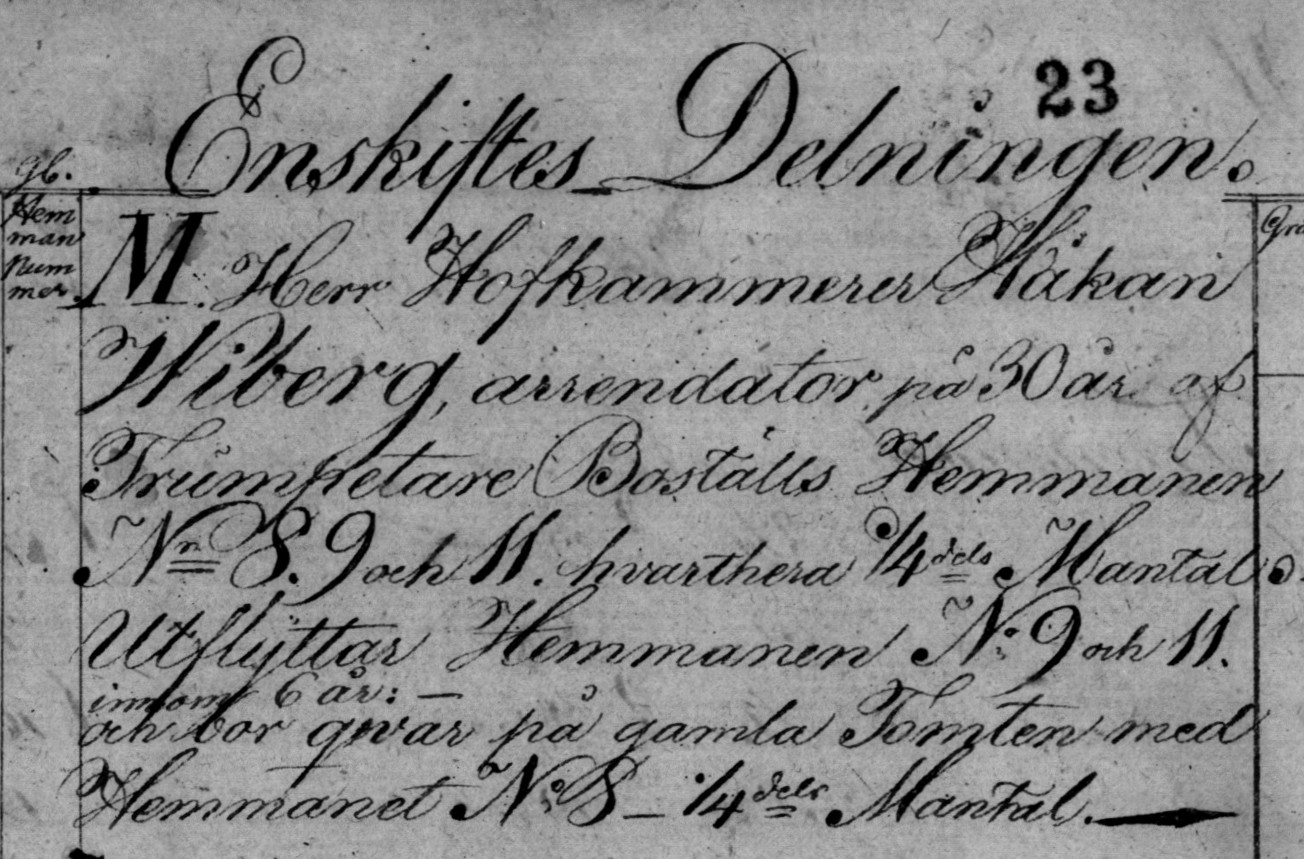 23
Enskiftes Delningen.
gl.
Hem
man
Num
mer.
M. Herr Hofkammerer Håkan
Wiberg, arrendator på 30 år af
Trumpetare Boställs Hemmanen
Nrn 8. 9 och 11. hvarthera 1/4 dels Mantal.
Utflyttar Hemmanen N: 9 och 11.
innom 6 år: —
och bor qwar på gamla Tomten med
Hemmanet N: 8 — 1/4 dels Mantal.